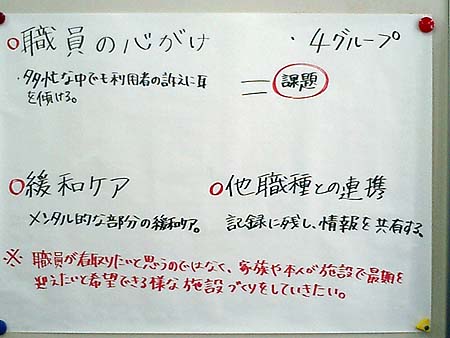 ○職員の心がけ
・4グループ
・多忙な中でも利用者の訴えに耳
を傾ける。
= 課題
○緩和ケア
メンタル的な部分の緩和ケア。
○他職種との連携
記録に残し、情報を共有する。
※ 職員が看取りたいと思うのではなく、家族や本人が施設で最期を
迎えたいと希望できる様な施設づくりをしていきたい。